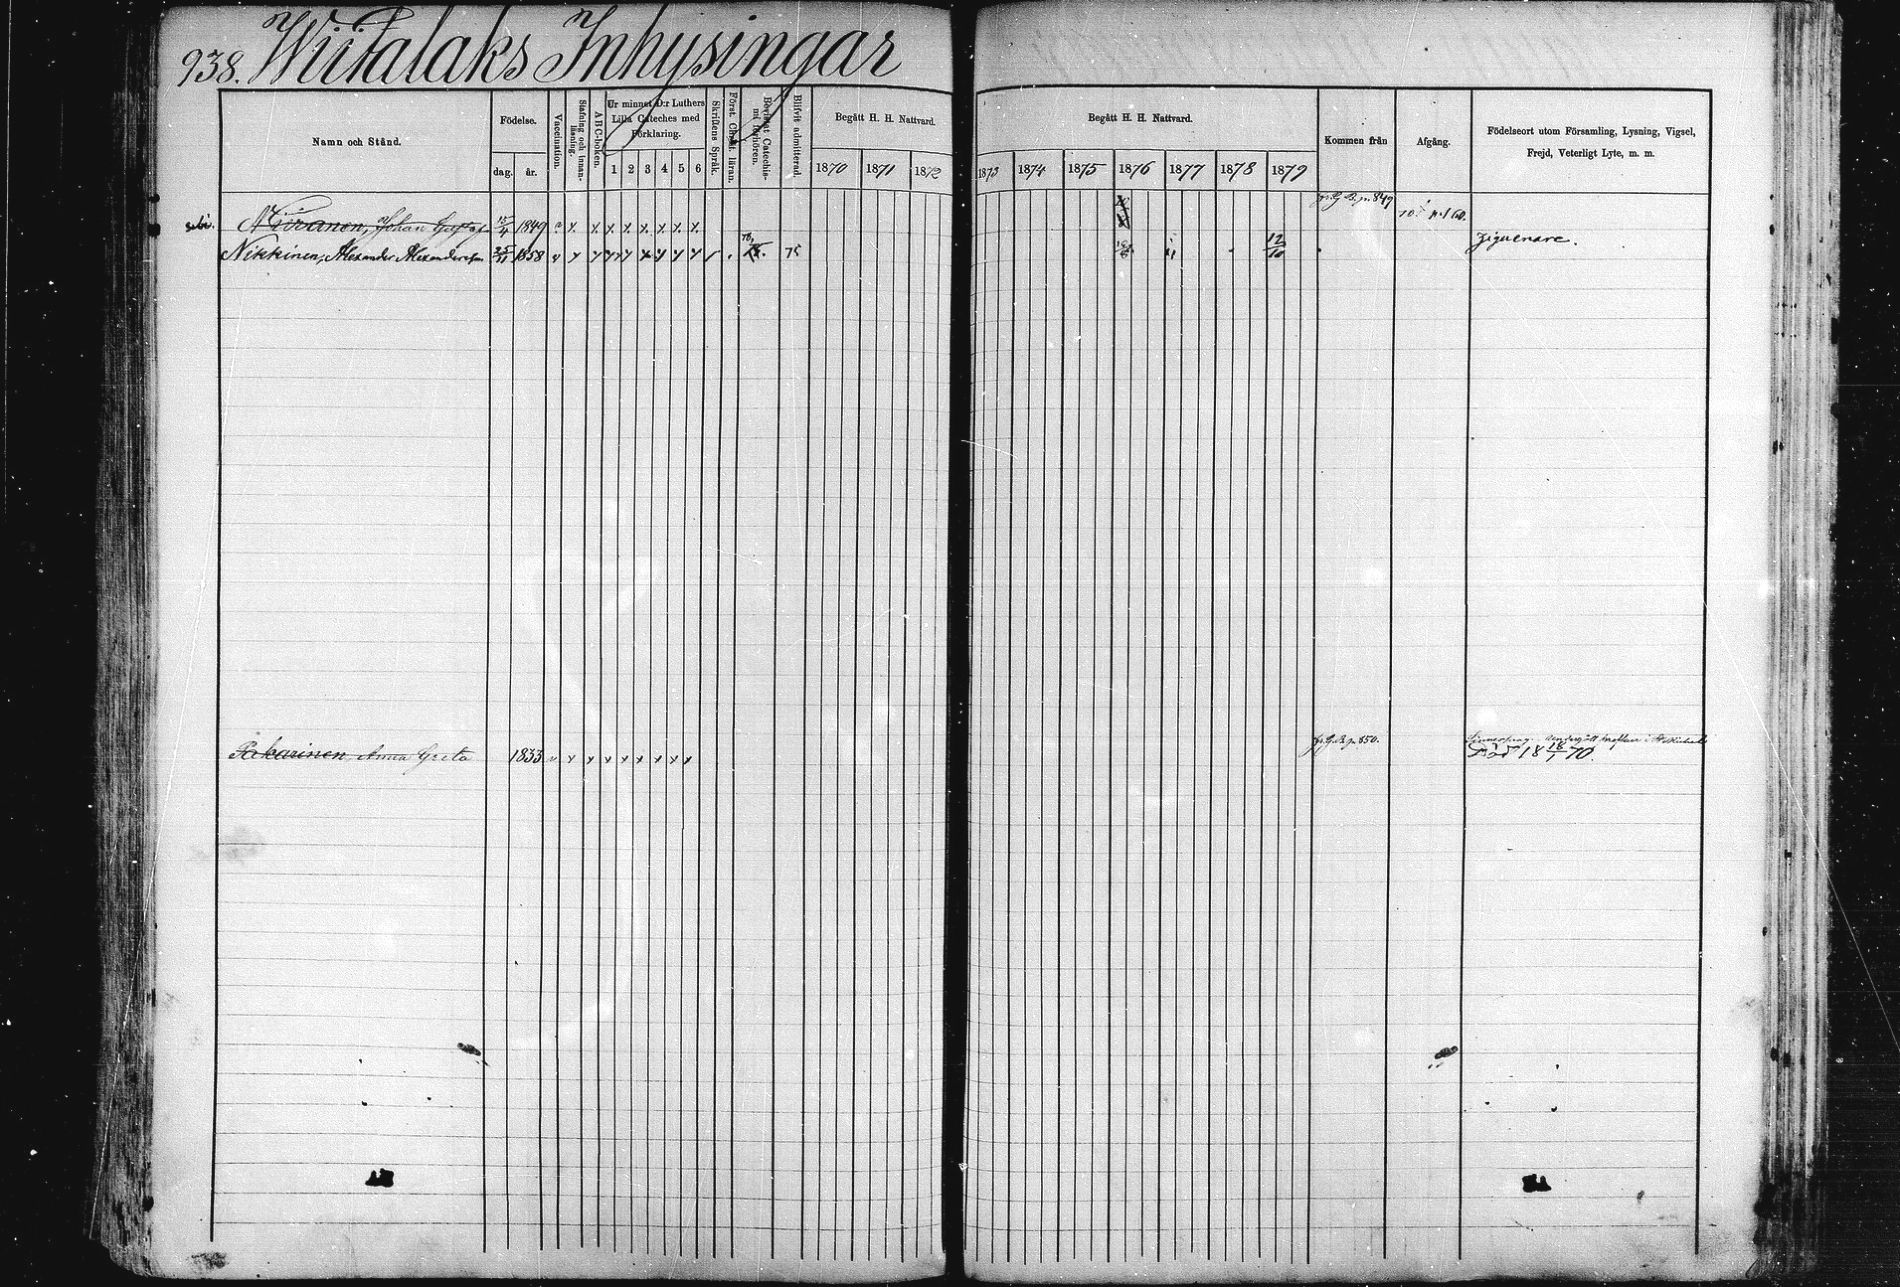 938. Wiitalaks Inhysingar
Namn och Stånd.
Födelse.
dag.
år.
Vaccination.
Stafning och innanläsning.
ABC-boken.
Ur minnet D:r Luthers
Lilla Cateches med
Förklaring.
1 2 3 4 5 6
Skriftens Språk.
Först. Christ. läran.
Bevistat Catechismi förhören.
Blifvit admitterad.
Begått H. H. Nattvard.
1870 1871 1872
Begått H. H. Nattvard.
1873 1874 1875 1876 1877 1878 1879
Kommen från
Afgång.
Födelseort utom Församling, Lysning, Vigsel,
Frejd, Veterligt Lyte, m. m.
Johan Gustaf 15/4 1849 x x x x x x x x
fr. G. B. p. 849
Nikkinen, Alexander 25/11 1858 75 12/10
Ziguenare.
Pakarinen, Anna Greta 1833 x x x x x x x x
fr. G. B. p. 850.
Död 18 18/1 70.